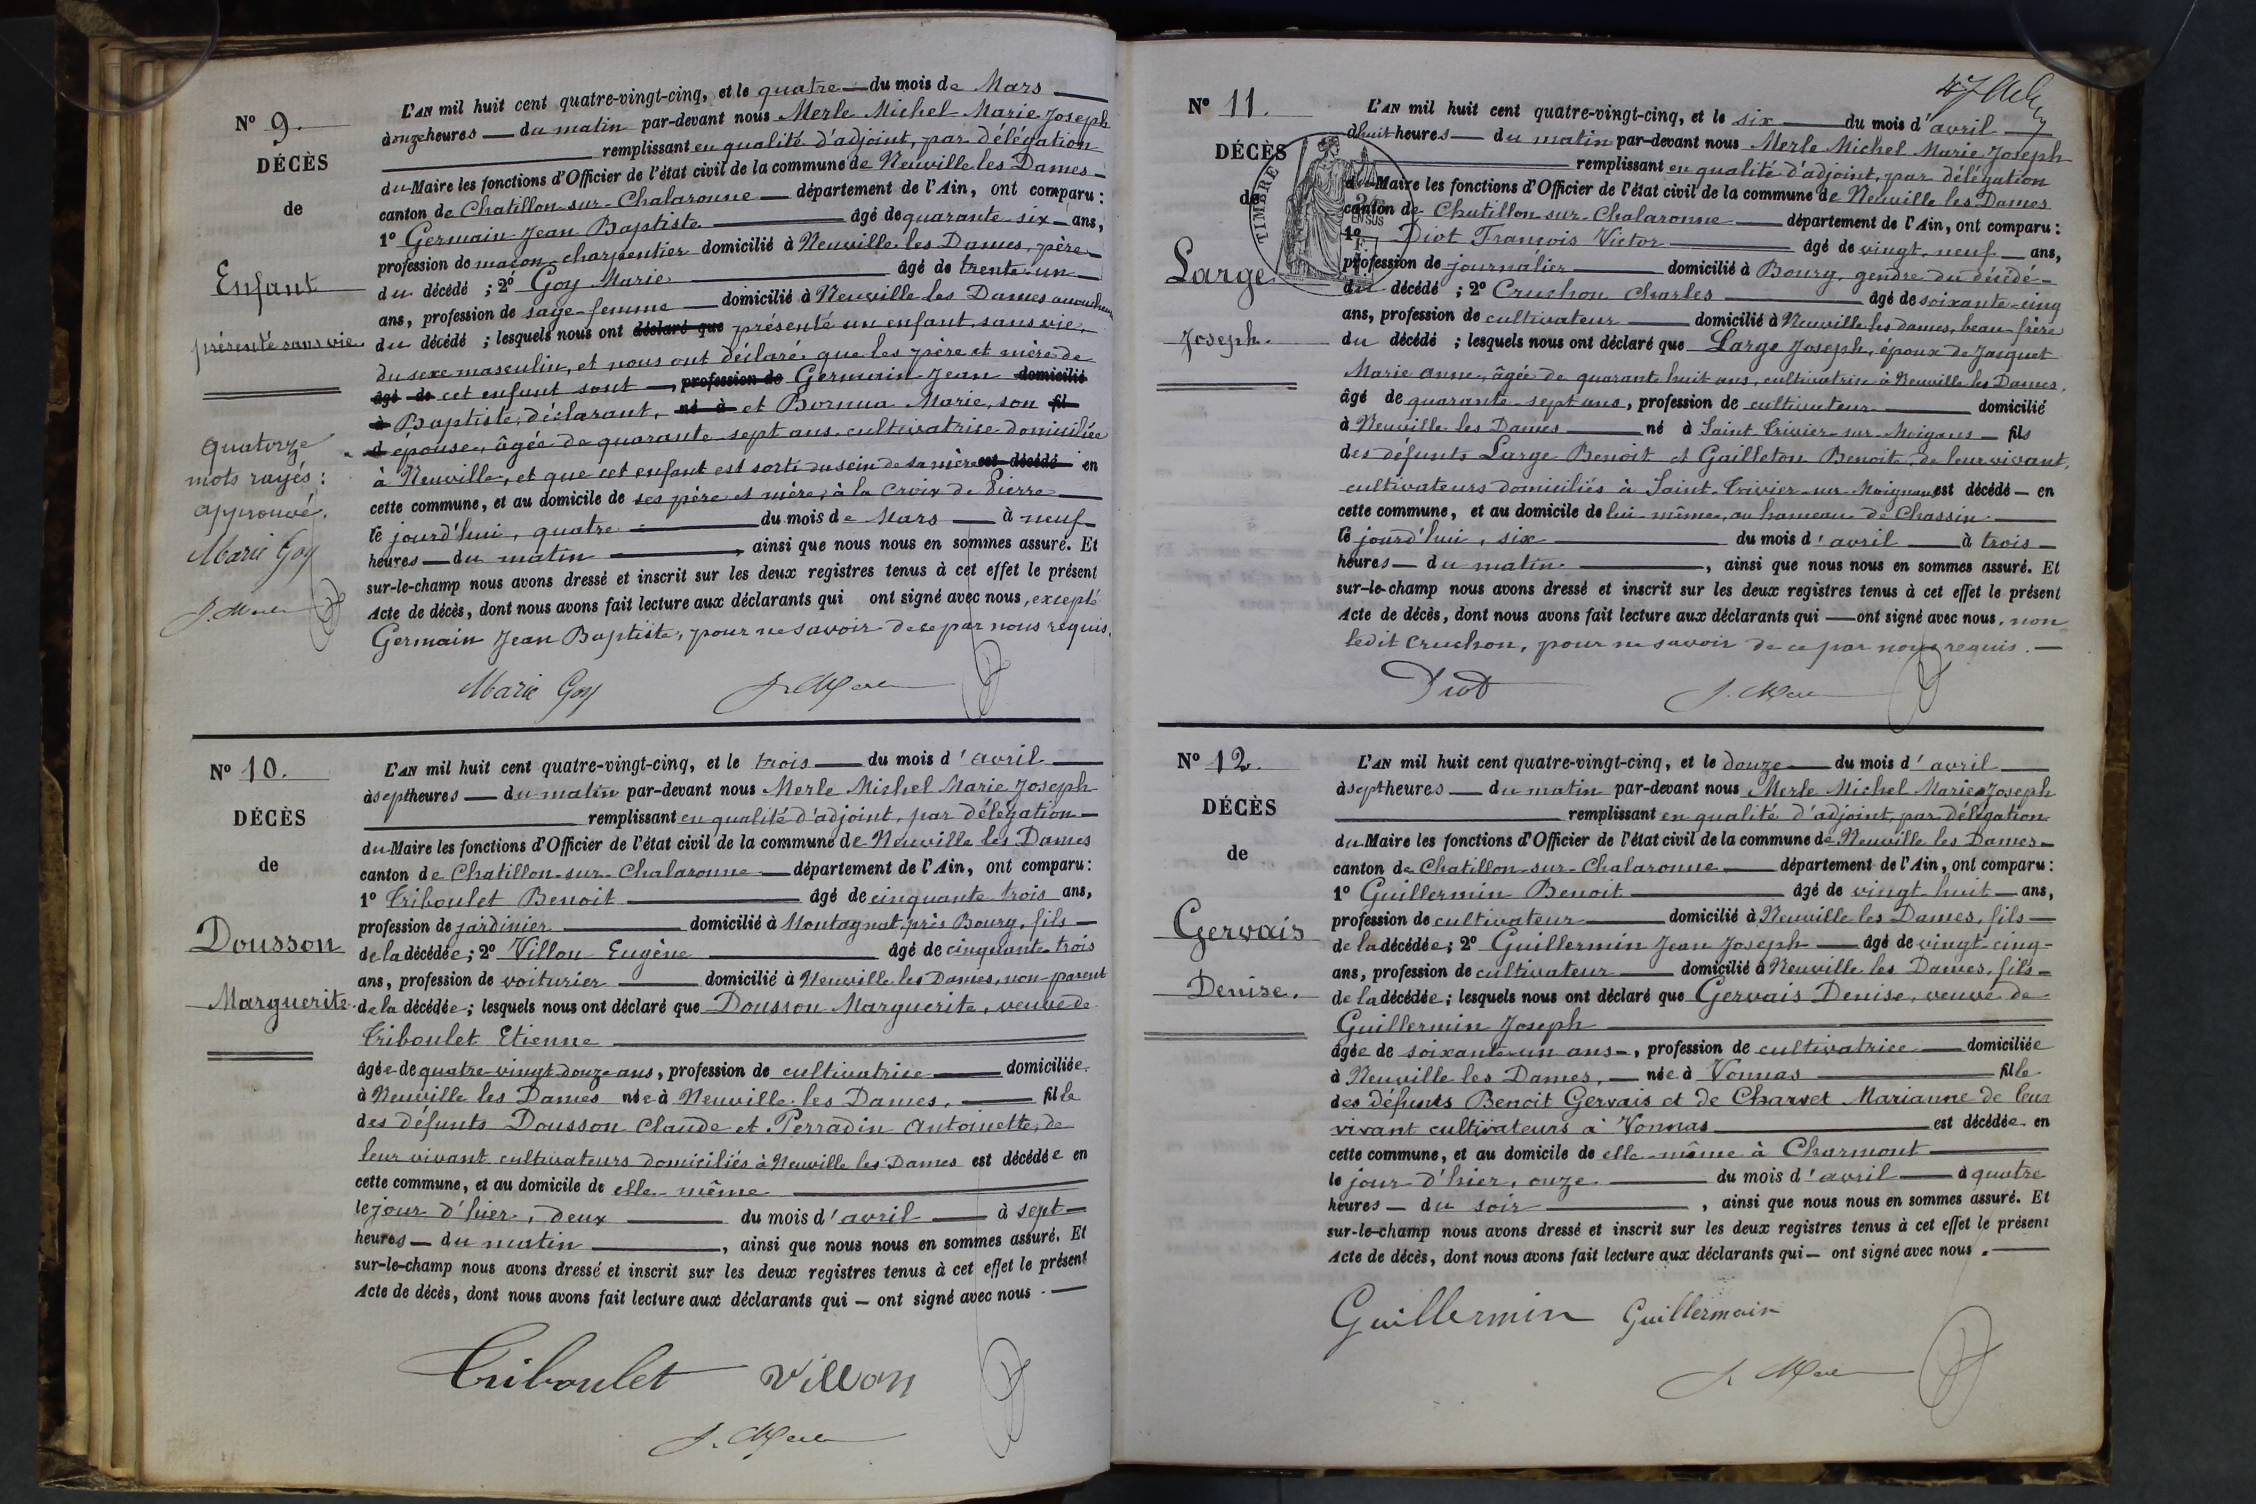 Nº 9.
DÉCÈS
de
Enfant
présenté sans vie
quatorze
mots rayés :
approuvé.
Marie Goy
J. Merle
L'AN mil huit cent quatre-vingt-cinq, et le quatre du mois de Mars
à onze heures du matin par-devant nous Merle Michel Marie Joseph
remplissant en qualité d'adjoint, par délégation
du Maire les fonctions d'Officier de l'état civil de la commune de Neuville les Dames
canton de Chatillon-sur-Chalaronne département de l'Ain, ont comparu :
1º Germain Jean Baptiste âgé de quarante six ans,
profession de maçon charpentier domicilié à Neuville les Dames, père
du décédé ; 2º Goy Marie âgé de trente-un
ans, profession de sage-femme domicilié à Neuville les Dames
du décédé ; lesquels nous ont déclaré que présenté un enfant sans vie,
du sexe masculin, et nous ont déclaré que les père et mère de
âgé de cet enfant sont , profession de Germain Jean domicilié
à Baptiste, déclarant, né à et Bornua Marie, son fil
d épouse, âgée de quarante-sept ans, cultivatrice domiciliée
à Neuville, et que cet enfant est sorti du sein de sa mère est décédé en
cette commune, et au domicile de ses père et mère, à la Croix de Pierre
le jourd'hui, quatre du mois de Mars à neuf
heures du matin , ainsi que nous nous en sommes assuré. Et
sur-le-champ nous avons dressé et inscrit sur les deux registres tenus à cet effet le présent
Acte de décès, dont nous avons fait lecture aux déclarants qui ont signé avec nous, excepté
Germain Jean Baptiste, pour ne savoir de ce par nous requis.
Marie Goy J. Merle
Nº 10.
DÉCÈS
de
Dousson
Marguerite.
L'AN mil huit cent quatre-vingt-cinq, et le trois du mois d'avril
à sept heures du matin par-devant nous Merle Michel Marie Joseph
remplissant en qualité d'adjoint, par délégation
du Maire les fonctions d'Officier de l'état civil de la commune de Neuville les Dames
canton de Chatillon-sur-Chalaronne département de l'Ain, ont comparu :
1º Triboulet Benoit âgé de cinquante trois ans,
profession de jardinier domicilié à Montagnat, près Bourg, fils
de la décédée ; 2º Villon Eugène âgé de cinquante trois
ans, profession de voiturier domicilié à Neuville les Dames, non parent
de la décédée ; lesquels nous ont déclaré que Dousson Marguerite, veuve de
Triboulet Etienne
âgée de quatre-vingt-douze ans, profession de cultivatrice domiciliée
à Neuville les Dames née à Neuville les Dames, fille
des défunts Dousson Claude et Perradin Antoinette, de
leur vivant cultivateurs domiciliés à Neuville les Dames est décédée en
cette commune, et au domicile de elle-même
le jour d'hier, deux du mois d'avril à sept
heures du matin , ainsi que nous nous en sommes assuré. Et
sur-le-champ nous avons dressé et inscrit sur les deux registres tenus à cet effet le présent
Acte de décès, dont nous avons fait lecture aux déclarants qui ont signé avec nous.
Triboulet Villon
J. Merle
Nº 11.
DÉCÈS
de
Large
Joseph.
TIMBRE
L'AN mil huit cent quatre-vingt-cinq, et le six du mois d'avril
à huit heures du matin par-devant nous Merle Michel Marie Joseph
remplissant en qualité d'adjoint, par délégation
du Maire les fonctions d'Officier de l'état civil de la commune de Neuville les Dames
canton de Chatillon-sur-Chalaronne département de l'Ain, ont comparu :
1º Diot François Victor âgé de vingt-neuf ans,
profession de journalier domicilié à Bourg, gendre du décédé
du décédé ; 2º Cruchon Charles âgé de soixante-cinq
ans, profession de cultivateur domicilié à Neuville les Dames, beau-frère
du décédé ; lesquels nous ont déclaré que Large Joseph, époux de Jacquet
Marie Anne, âgée de quarante huit ans, cultivatrice à Neuville les Dames,
âgé de quarante-sept ans, profession de cultivateur domicilié
à Neuville les Dames né à Saint-Trivier-sur-Moignans fils
des défunts Large Benoit et Gailleton Benoite, de leur vivant,
cultivateurs domiciliés à Saint-Trivier-sur-Moignans est décédé en
cette commune, et au domicile de lui-même, au hameau de Chassin
le jourd'hui, six du mois d'avril à trois
heures du matin , ainsi que nous nous en sommes assuré. Et
sur-le-champ nous avons dressé et inscrit sur les deux registres tenus à cet effet le présent
Acte de décès, dont nous avons fait lecture aux déclarants qui ont signé avec nous, non
ledit Cruchon, pour ne savoir de ce par nous requis.
Diot J. Merle
Nº 12.
DÉCÈS
de
Gervais
Denise.
L'AN mil huit cent quatre-vingt-cinq, et le douze du mois d'avril
à sept heures du matin par-devant nous Merle Michel Marie Joseph
remplissant en qualité d'adjoint, par délégation
du Maire les fonctions d'Officier de l'état civil de la commune de Neuville les Dames
canton de Chatillon-sur-Chalaronne département de l'Ain, ont comparu :
1º Guillermin Benoit âgé de vingt-huit ans,
profession de cultivateur domicilié à Neuville les Dames, fils
de la décédée ; 2º Guillermin Jean Joseph âgé de vingt-cinq
ans, profession de cultivateur domicilié à Neuville les Dames, fils
de la décédée ; lesquels nous ont déclaré que Gervais Denise, veuve de
Guillermin Joseph
âgée de soixante-un ans, profession de cultivatrice domiciliée
à Neuville les Dames, née à Vonnas fille
des défunts Benoit Gervais et de Charvet Marianne de leur
vivant cultivateurs à Vonnas est décédée en
cette commune, et au domicile de elle-même à Charmont
le jour d'hier, onze du mois d'avril à quatre
heures du soir , ainsi que nous nous en sommes assuré. Et
sur-le-champ nous avons dressé et inscrit sur les deux registres tenus à cet effet le présent
Acte de décès, dont nous avons fait lecture aux déclarants qui ont signé avec nous.
Guillermin Guillermain
J. Merle